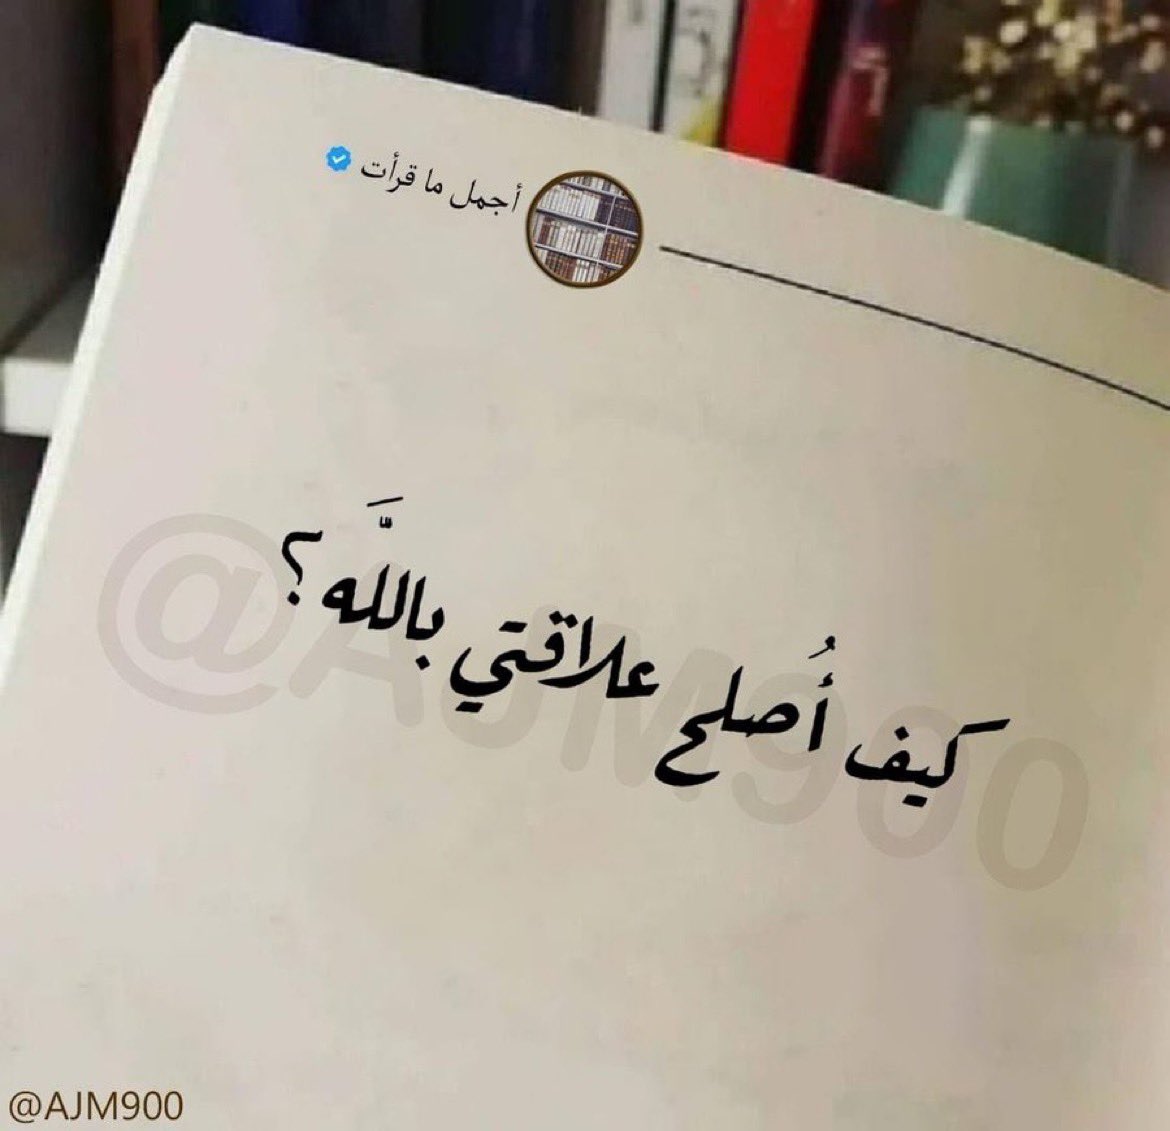 أجمل ما قرأت
كيف أُصلح علاقتي باللَّه؟
@AJM900
@AJM900